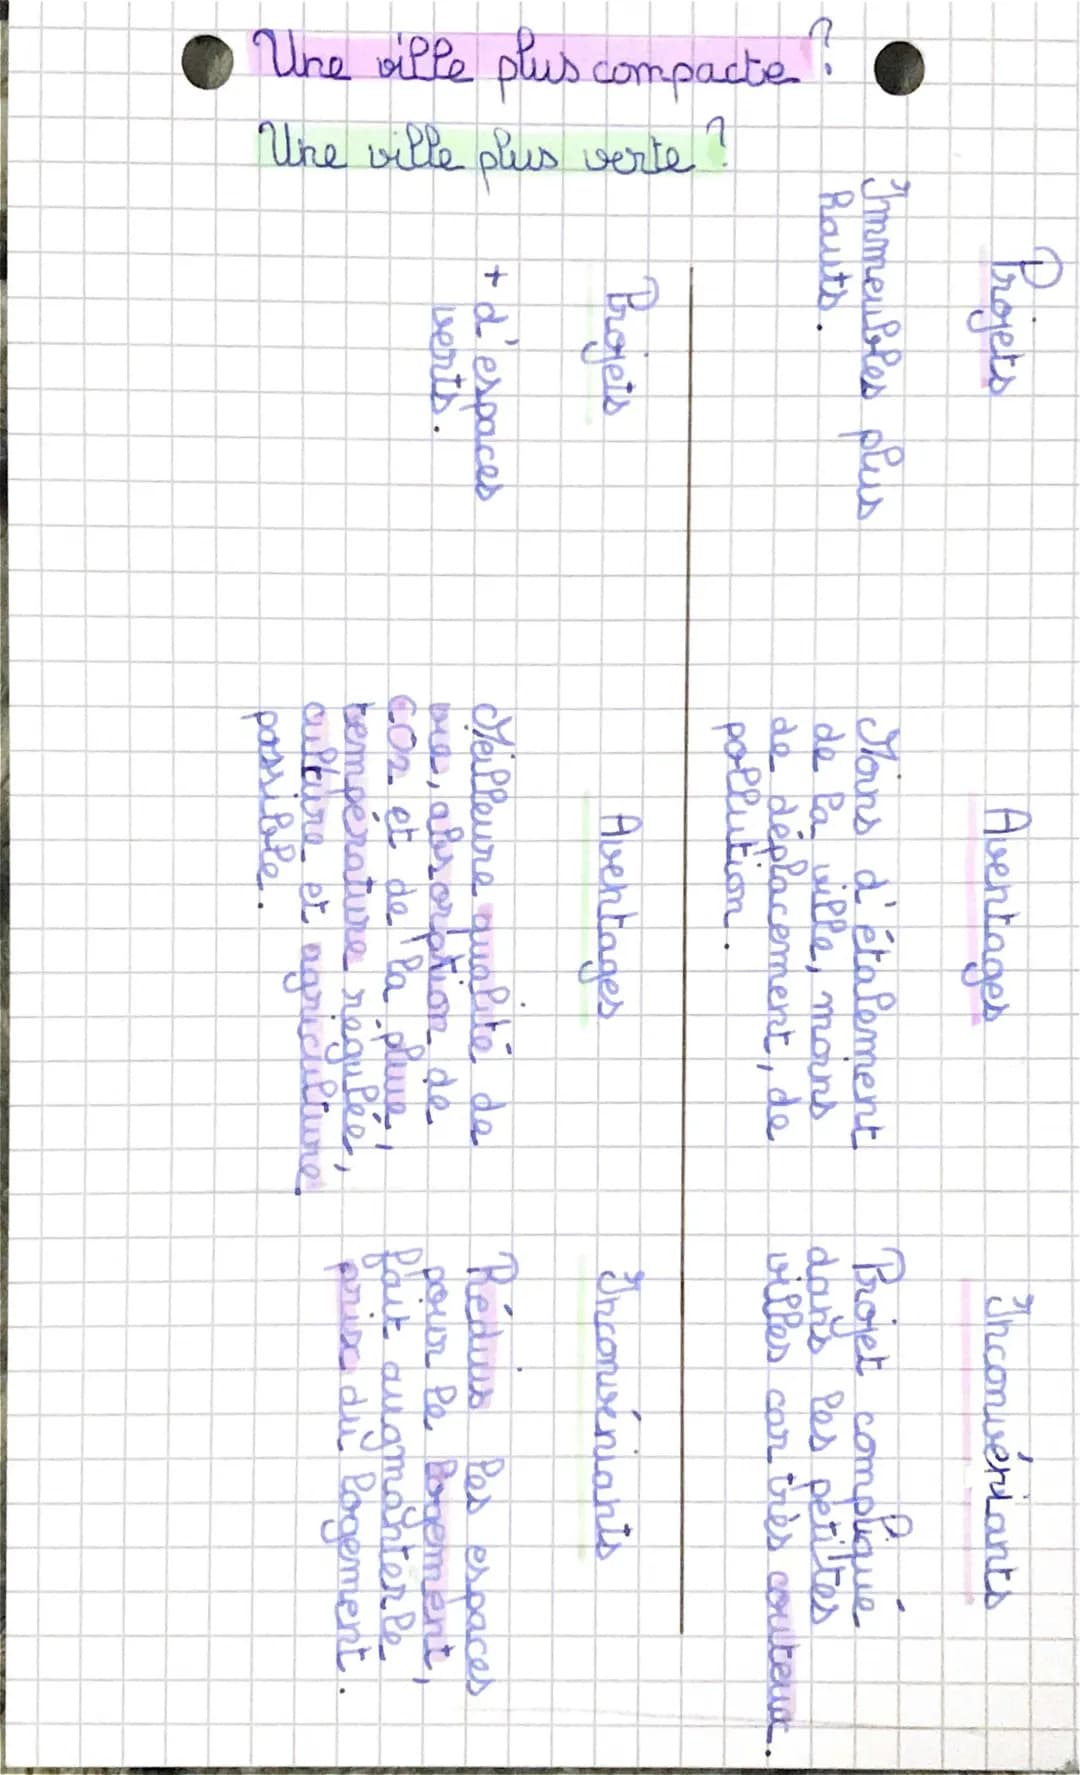 Une ville plus compacte ?
Une ville plus verte ?
Projets
Immeubles plus
hauts.
Aventages
Moins d'étalement
de la ville, moins
de déplacement, de
pollution.
Inconvéniants
Projet compliqué
dans les petites
villes car très couteux.
Projets
+ d'espaces
verts.
Aventages
Meilleure qualité de
vie, absorption de
CO2 et de la pluie,
température régulée,
culture et agriculture
possible.
Inconvéniants
Réduis les espaces
pour le logement,
fait augmanter le
prix du logement.